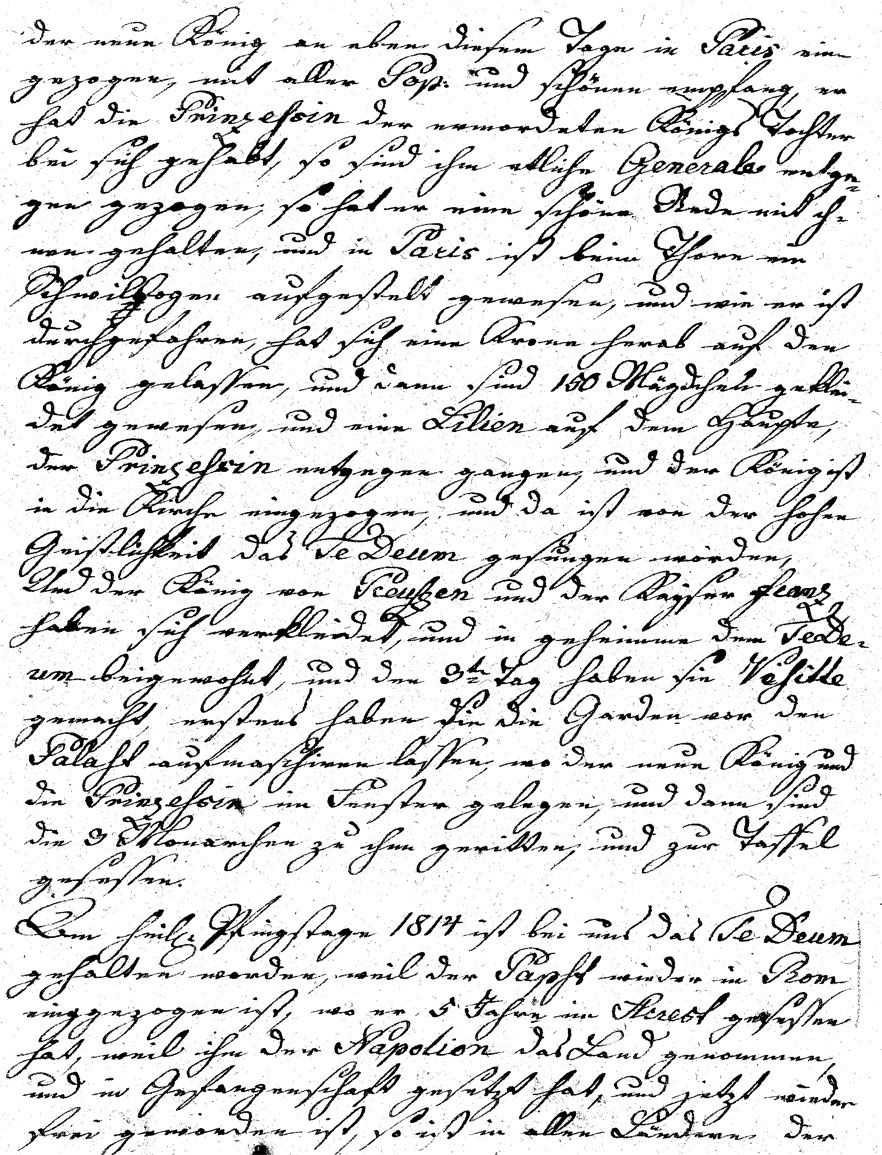 der neue König an eben diesem Tage in Paris ein
gezogen, mit aller Pop: und schönen empfang, er
hat die Prinzessin der ermordeten Königs Tochter
bei sich gehabt, so sind ihm etliche Generale entge-
gen gezogen, so hat er eine schöne Rede mit ih-
nen gehalten, und in Paris ist beim Thore ein
Schwilbogen aufgestelt gewesen, und wie er ist
durchgefahren, hat sich eine Krone herab auf den
König gelassen, und dann sind 150 Mägdchen geklei-
det gewesen, und eine Lilien auf dem Haupte,
der Prinzessin entgegen gangen, und der König ist
in die Kirche eingezogen, und da ist von der hohen
Geistlichkeit das Te Deum gesungen worden,
Und der König von Preußen und der Kayser Franz
haben sich verkleidet, und in geheimme dem Te De-
um beigewohnt, und den 3t Tag haben sie Visitte
gemacht, erstens haben sie die Garden vor den
Palast aufmaschiren lassen, wo der neue König und
die Prinzessin im Fenster gelegen, und dann sind
die 3 Monarchen zu ihm geritten, und zur Taffel
gesessen.
Am heil: Pfingstage 1814 ist bei uns das Te Deum
gehalten worden, weil der Papst wieder in Rom
einggezogen ist, wo er 5 Jahre im Arrest gesessen
hat, weil ihm der Napolion das Land genommen,
und in Gefangenschaft gesetzt hat, und jetzt wieder
frei geworden ist, so ist in allen Ländern der